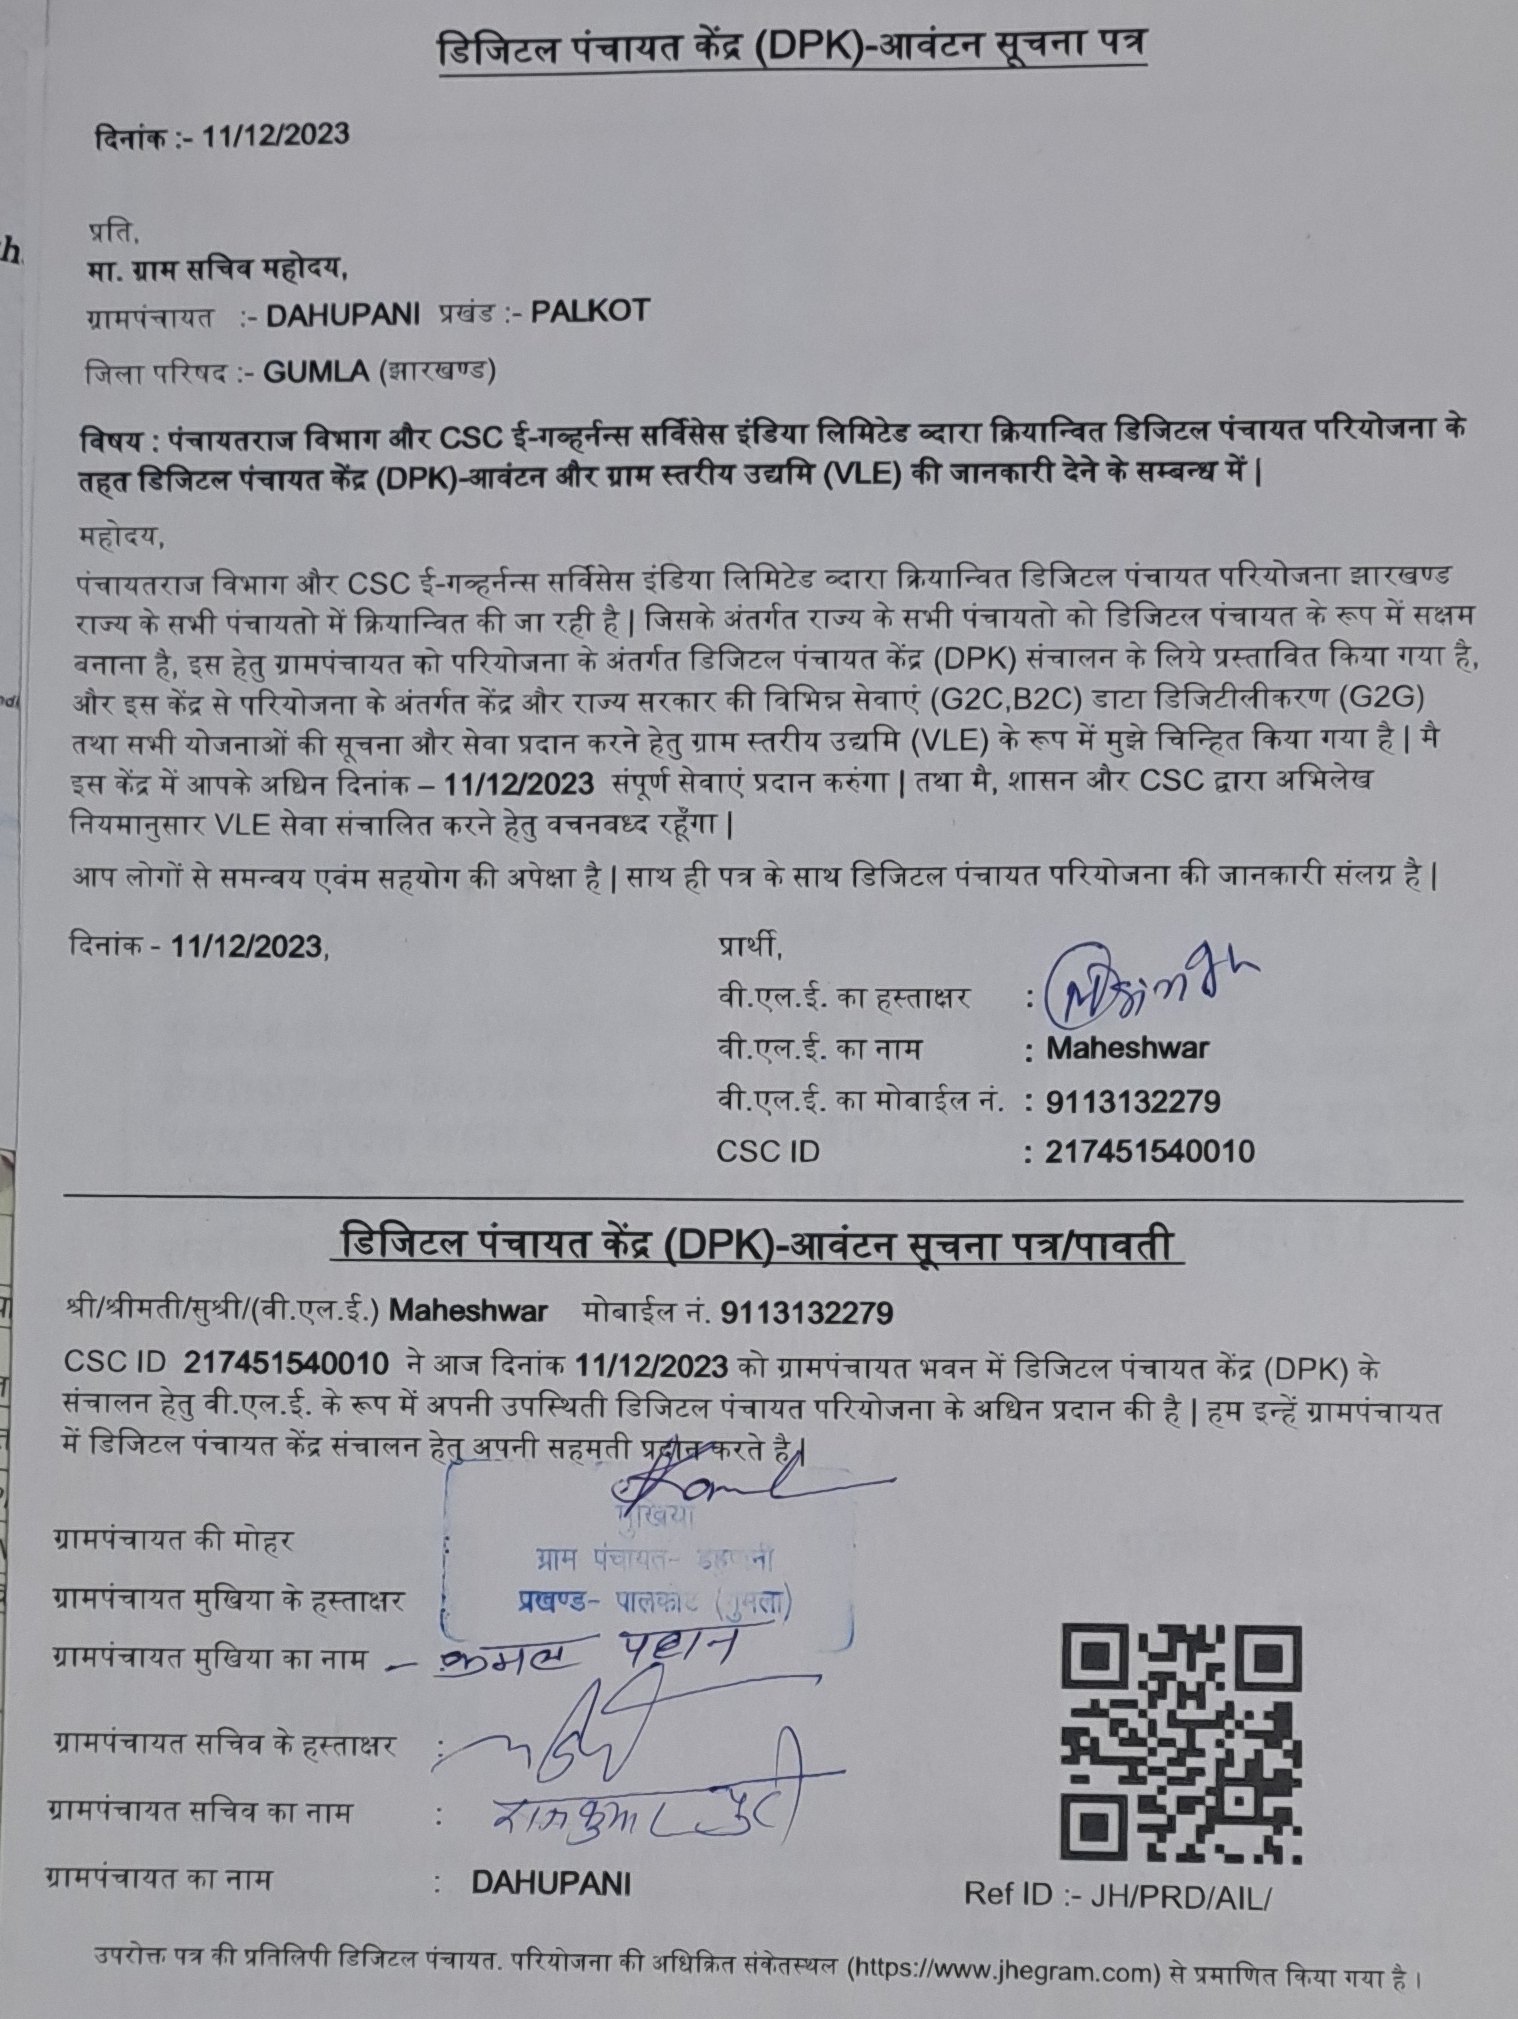 डिजिटल पंचायत केंद्र (DPK)-आवंटन सूचना पत्र
दिनांक :- 11/12/2023
प्रति,
मा. ग्राम सचिव महोदय,
ग्रामपंचायत :- DAHUPANI प्रखंड :- PALKOT
जिला परिषद :- GUMLA (झारखण्ड)
विषय : पंचायतराज विभाग और CSC ई-गव्हर्नन्स सर्विसेस इंडिया लिमिटेड व्दारा क्रियान्वित डिजिटल पंचायत परियोजना के
तहत डिजिटल पंचायत केंद्र (DPK)-आवंटन और ग्राम स्तरीय उद्यमि (VLE) की जानकारी देने के सम्बन्ध में |
महोदय,
पंचायतराज विभाग और CSC ई-गव्हर्नन्स सर्विसेस इंडिया लिमिटेड व्दारा क्रियान्वित डिजिटल पंचायत परियोजना झारखण्ड
राज्य के सभी पंचायतो में क्रियान्वित की जा रही है | जिसके अंतर्गत राज्य के सभी पंचायतो को डिजिटल पंचायत के रूप में सक्षम
बनाना है, इस हेतु ग्रामपंचायत को परियोजना के अंतर्गत डिजिटल पंचायत केंद्र (DPK) संचालन के लिये प्रस्तावित किया गया है,
और इस केंद्र से परियोजना के अंतर्गत केंद्र और राज्य सरकार की विभिन्न सेवाएं (G2C,B2C) डाटा डिजिटीलीकरण (G2G)
तथा सभी योजनाओं की सूचना और सेवा प्रदान करने हेतु ग्राम स्तरीय उद्यमि (VLE) के रूप में मुझे चिन्हित किया गया है | मै
इस केंद्र में आपके अधिन दिनांक – 11/12/2023 संपूर्ण सेवाएं प्रदान करुंगा | तथा मै, शासन और CSC द्वारा अभिलेख
नियमानुसार VLE सेवा संचालित करने हेतु वचनबध्द रहूँगा |
आप लोगों से समन्वय एवंम सहयोग की अपेक्षा है | साथ ही पत्र के साथ डिजिटल पंचायत परियोजना की जानकारी संलग्र है |
दिनांक - 11/12/2023,
प्रार्थी,
वी.एल.ई. का हस्ताक्षर :
वी.एल.ई. का नाम : Maheshwar
वी.एल.ई. का मोवाईल नं. : 9113132279
CSC ID : 217451540010
डिजिटल पंचायत केंद्र (DPK)-आवंटन सूचना पत्र/पावती
श्री/श्रीमती/सुश्री/(वी.एल.ई.) Maheshwar मोबाईल नं. 9113132279
CSC ID 217451540010 ने आज दिनांक 11/12/2023 को ग्रामपंचायत भवन में डिजिटल पंचायत केंद्र (DPK) के
संचालन हेतु वी.एल.ई. के रूप में अपनी उपस्थिती डिजिटल पंचायत परियोजना के अधिन प्रदान की है | हम इन्हें ग्रामपंचायत
में डिजिटल पंचायत केंद्र संचालन हेतु अपनी सहमती प्रदान करते है |
मुखिया
ग्रामपंचायत की मोहर :
ग्राम पंचायत-
ग्रामपंचायत मुखिया के हस्ताक्षर :
प्रखण्ड- पालकोट (गुमला)
ग्रामपंचायत मुखिया का नाम – कमल पहान
ग्रामपंचायत सचिव के हस्ताक्षर :
ग्रामपंचायत सचिव का नाम : रामकुमार पुरी
ग्रामपंचायत का नाम : DAHUPANI
Ref ID :- JH/PRD/AIL/
उपरोक्त पत्र की प्रतिलिपी डिजिटल पंचायत. परियोजना की अधिक्रित संकेतस्थल (https://www.jhegram.com) से प्रमाणित किया गया है ।